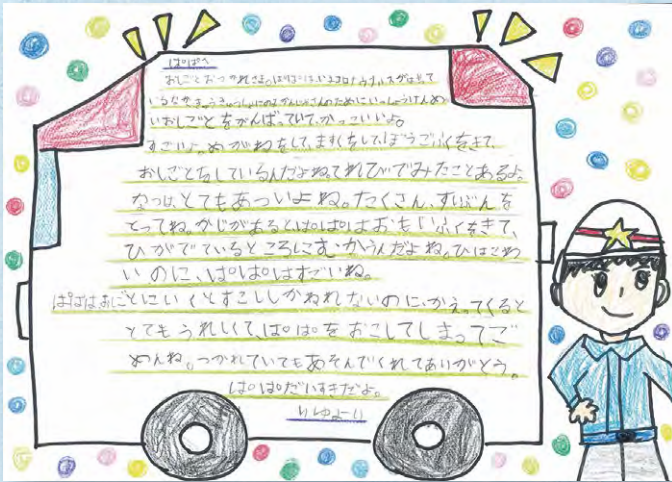 ぱぱへ
おしごとおつかれさま。ぱぱは、いまコロナウイルスがはやって
いるなか、きゅうきゅうしゃにのるかんじゃさんのためにいっしょうけんめ
いおしごとをがんばっていて、かっこいいよ。
すごいよ。めがねをして、ますくをして、ぼうごふくをきて、
おしごとをしているんだよね。てれびでみたことあるよ。
なつは、とてもあついよね。たくさん、すいぶんを
とってね。かじがあるとぱぱはおもいふくをきて、
ひがでているところにむかうんだよね。ひはこわ
いのに、ぱぱはすごいね。
ぱぱはおしごとにいくとすこししかねれないのに、かえってくると
とてもうれしくて、ぱぱをおこしてしまってご
めんね。つかれていてもあそんでくれてありがとう。
ぱぱだいすきだよ。
より